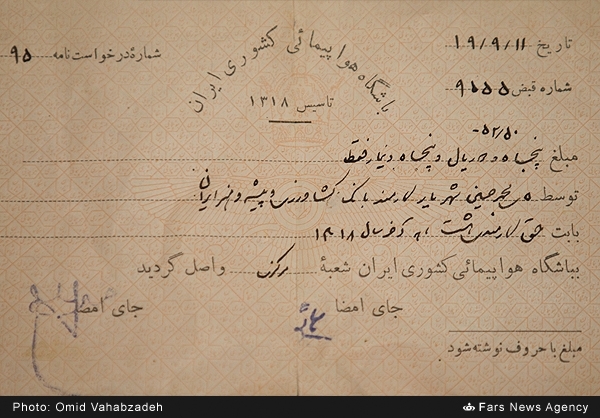 باشگاه هواپیمائی کشوری ایران
تاسیس ۱۳۱۸
تاریخ ۱۹/۹/۱۱
شمارهٔ درخواست نامه ۹۵
شماره قبض ۹۱۵۵
۵۲/۵۰-
مبلغ پنجاه و دو ریال و پنجاه دینار فقط
توسط محمد حسین شهریار کارمند بانک کشاورزی و پیشه و هنر ایران
بابت حق کارمندی آخر سال ۱۳۱۸
بباشگاه هواپیمائی کشوری ایران شعبهٔ مرکزی واصل گردید
جای امضا
جای امضا
مبلغ با حروف نوشته شود
Photo: Omid Vahabzadeh
Fars News Agency